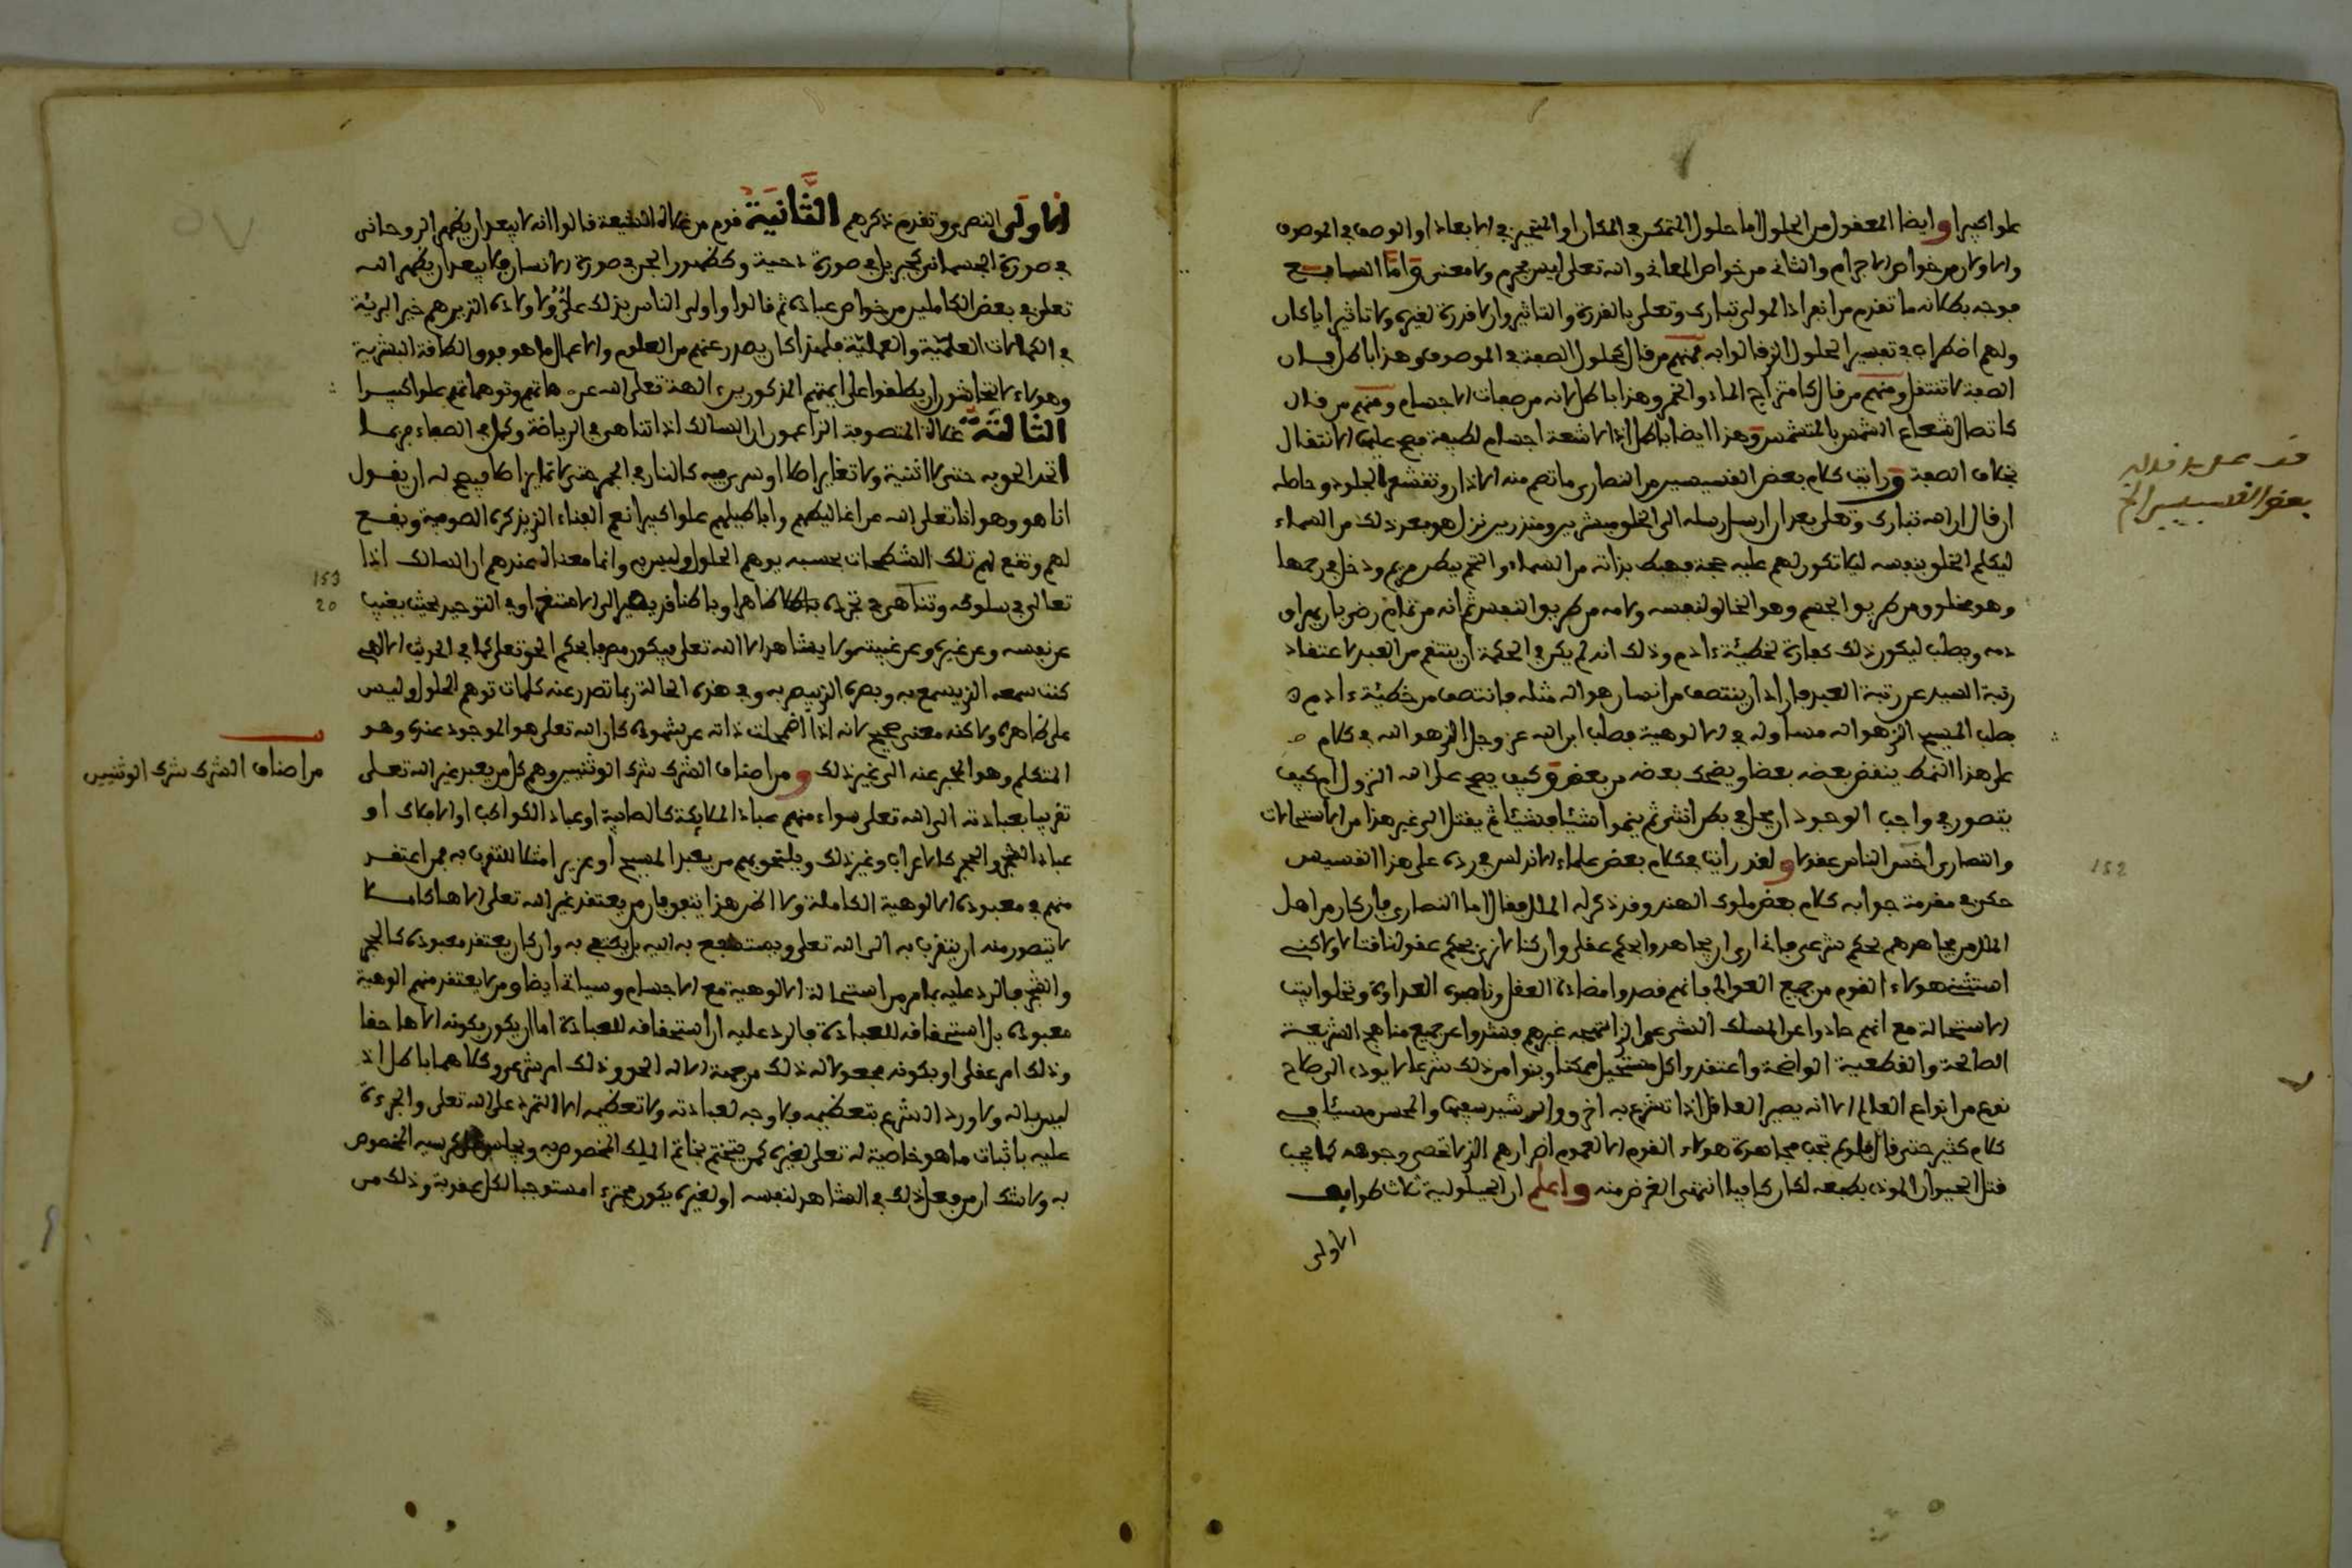 علوا كبيرا وايضا المعقول من الحلول اما حلول المتمكن في المكان او المتحيز في الابعاد او الوصف في الموصوف
والاول من خواص الاجرام والثاني من خواص المعاني والله تعلى ليس بجرم ولا معنى واما السابع
فوجه بطلانه ما تقدم من انفراد المولى تبارك وتعلى بالقدرة والتاثير وان لا قدرة لغيره ولا تاثير ايا كان
ولهم اضطراب في تفسير الحلول الذي قالوا به فمنهم من قال كحلول الصفة في الموصوف وهذا باطل فان
الصفة لا تنتقل ومنهم من قال كامتزاج الماء والخمر وهذا باطل لانه من صفات الاجسام ومنهم من قال
كاتصال شعاع الشمس بالمتشمس وهذا ايضا باطل اذ الاشعة اجسام لطيفة فيصح عليها الانتقال
بخلاف الصفة ورايت كلام بعض القسيسين من النصارى ما تصم منه الاذان وتقشعر الجلود وحاصله
ان قال ان الله تبارك وتعلى بعد ان ارسل رسله الى الخلق مبشرين ومنذرين نزل هو بعد ذلك من السماء
ليكلم الخلق بنفسه ليلا تكون لهم عليه حجة فهبط بذاته من السماء والتحم ببطن مريم ودخل في رحمها
وهو مخلوق من طريق الجسم وهو الخالق لنفسه ولامه من طريق النفس ثم انه من تمام رضي باريهراق
دمه وبصلب ليكون ذلك كفارة لخطيئة ءادم وذلك انه لم يكن في الحكمة ان ينتقم من العبد لاعتقاد
رتبة السيد عن رتبة العبد فاراد ان ينتصف من انسان هو اله مثله فانتصف من خطيئة ءادم
بصلب المسيح الذي هو اله مساو له في الالوهية فصلب ابن الله عز وجل الذي هو الله في كلام
على هذا النمط ينقض بعضه بعضا ويضحك بعضه من بعض وكيف يصح على الله النزول ام كيف
يتصور في واجب الوجود ان يحل في بطن انثى ثم ينموا شيئا فشيئا ثم يقتل الى غير هذا من الاستحالات
والنصارى اخس الناس عقولا ولقد رايت في كلام بعض علماء الاندلس في رده على هذا القسيس
حكى في مقدمة جوابه كلام بعض ملوك الهند وقد ذكر له الملل فقال اما النصارى فان كان من اهل
الملل من يجاهدهم بحكم شرعي فانا ارى ان يجاهدوا بحكم عقلي وان كنا لا نرى بحكم عقولنا قتالا ولكني
استثني هولاء القوم من جميع العوالم فانهم قصدوا مضادة العقل وناصبوه العداوة وتحلوا ببث
الاستحالة مع انهم حادوا عن المسلك الشرعي الذي انتهجه غيرهم فشذوا عن جميع مناهج الشريعة
الصالحة والقطعية الواضحة واعتقدوا كل مستحيل ممكنا وبنوا من ذلك شرعا لا يودى الى صلاح
نوع من انواع العالم الا انه يصير العاقل اذا تشرع به اخرق والرشيد سفيها والمحسن مسيئا في
كلام كثير حتى قال فلو لم تجب مجاهدة هولاء القوم الا لعموم اضرارهم التي لا تحصى وجوهه كما يجب
قتل الحيوان الموذي بطبعه لكان كافيا انتهى الغرض منه واعلم ان الحلولية ثلاث طوايف
الاولى
قف على قوله
بعض القسيسين الخ
152
الاولى النصارى وتقدم ذكرهم الثانية قوم من غلاة الشيعة قالوا انه لا يبعد ان يظهر الروحاني
في صورة الجسماني كجبريل في صورة دحية وكظهور الجن في صورة الانسان فلا يبعد ان يظهر الله
تعلى في بعض الكاملين من خواص عباده ثم قالوا واولى الناس بذلك علي واولاده الذين هم خير البرية
في الكمالات العلمية والعملية فلهذا كان يصدر عنهم من العلوم والاعمال ما هو فوق الطاقة البشرية
وهولاء لا يتحاشون ان يطلقوا على ايمتهم المذكورين الهة تعلى الله عن هاتهم وتوهماتهم علوا كبيرا
الثالثة غلاة المتصوفة الزاعمون ان السالك اذا تناهى في الرياضة وكمل في الصفاء فربما
اتحد الحق به حتى لا اثنينية ولا تغاير اصلا او سرى فيه كالنار في الجمر حتى لا تمايز اصلا فيصح له ان يقول
انا هو وهو انا تعلى الله عن اغاليطهم واباطيلهم علوا كبيرا نعم الفناء الذي يذكره الصوفية ويقع
لهم وتقع لهم تلك الشطحات بحسبه يوهم الحلول وليس به وانما معناه عندهم ان السالك اذا
تعالى في سلوكه وتناهى في تجرده ظاهرا وباطنا قد يصير الى الاستغراق في التوحيد بحيث يغيب
عن نفسه وعن غيره وعن غيبته ولا يشاهد الا الله تعلى فيكون مصرفا بحكم الحق تعلى كما في الحديث الالهي
كنت سمعه الذي يسمع به وبصره الذي يبصر به وفي هذه الحالة ربما تصدر عنه كلمات توهم الحلول وليس
على ظاهره ولاكنه معنى صحيح لانه اذا اضمحلت ذاته عن شهوده كان الله تعلى هو الموجود عنده وهو
المتكلم وهو المخبر عنه الى غير ذلك ومن اصناف الشرك شرك الوثنيين وهم كل من يعبد غير الله تعلى
تقربا بعبادته الى الله تعلى سواء منهم عباد الملائكة كالصابية او عباد الكواكب او الافلاك او
عباد الشجر والحجر كالاعراب وغير ذلك ويلتحق بهم من يعبد المسيح او عزير امثالا للتقرب به فمن اعتقد
منهم في معبوده الالوهية الكاملة ولا اظن هذا يتفق فان من يعتقد غير الله تعلى الاها كاملا
لا يتصور منه ان يتقرب به الى الله تعلى ويستشفع به اليه بل يكتفي به وان كان يعتقد معبوده كالحجر
والشجر فالرد عليه بما مر من استحالة الالوهية مع الاجسام وسياتي ايضا ومن لا يعتقد منهم الوهية
معبوده بل استحقاقه للعبادة فالرد عليه ان استحقاقه للعبادة اما ان يكون بكونه الاها حقا
وذلك امر عقلي او بكونه مجعولا له ذلك من جهة الاله الحق وذلك امر شرعي وكلاهما باطل اذ
ليس باله ولا ورد الشرع بتعظيمه فلا وجه لعبادته ولا تعظيمه الا التمرد على الله تعلى والجرءة
عليه باثبات ما هو خاصية له تعلى لغيره كمن يتختم بخاتم الملك المخصوص به ويجلس على كرسيه المخصوص
به ولا شك ان من فعل ذلك في الشاهد لنفسه او لغيره يكون مجترءا مستوجبا لكل عقوبة وذلك من
153
20
من اصناف الشرك شرك الوثنيين